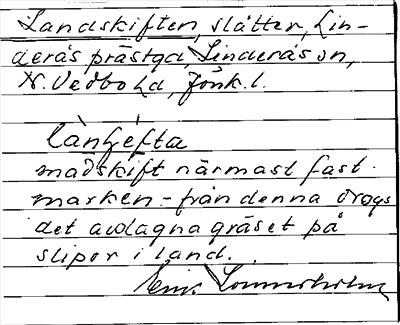 Landskiften, slåtter, Lin-
derås prästgd, Linderås sn,
N. Vedbo hd, Jönk. l.
madskift närmast fast-
marken - från denna drogs
det avslagna gräset på
slipor i land.